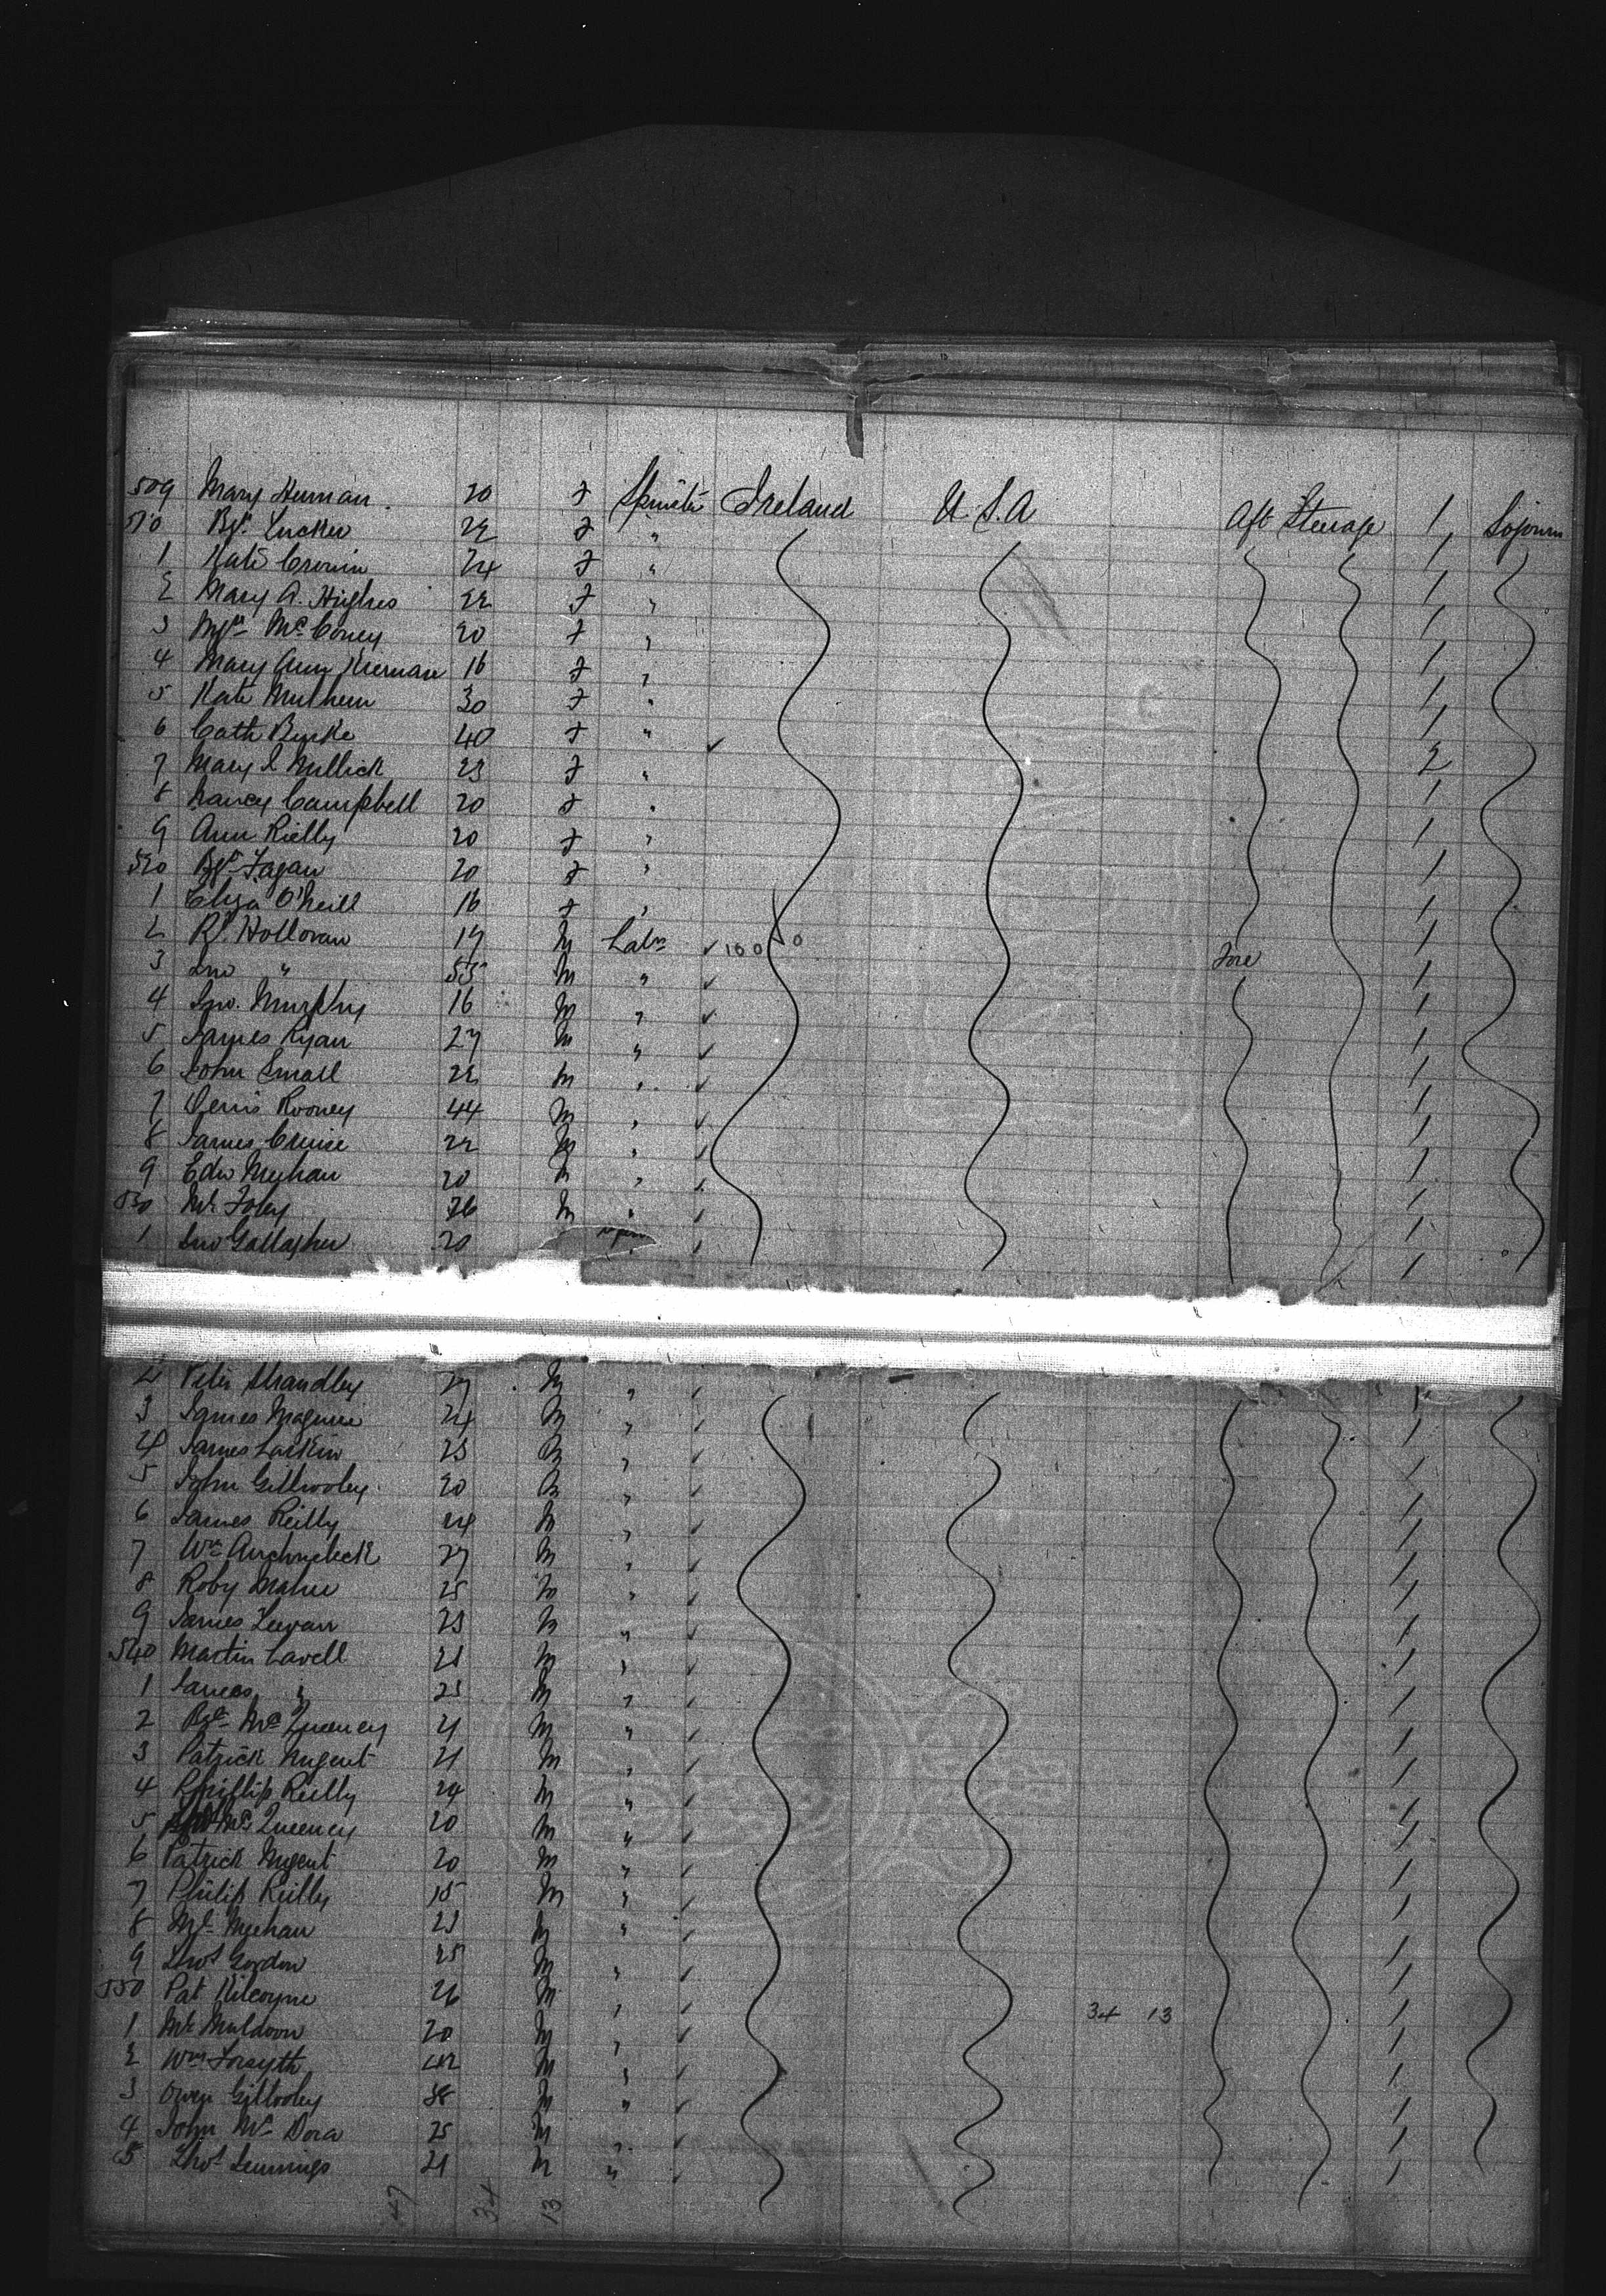 509 Mary 20 F Spinster Ireland U.S.A Aft Steerage 1 Sojourn
510 Bgt. Tucker 22 F "
1 Kate Cronin 24 F " 1
2 Mary A. Hughes 22 F " 1
3 Mc Coney 20 F " 1
4 Mary Ann Kiernan 16 F " 1
5 Kate Mulhern 30 F " 1
6 Cath Burke 40 F " 1
7 Mary 23 F " 2
8 Nancy Campbell 20 F " 1
9 Ann Rielly 20 F " 1
520 Bgt Fagan 20 F " 1
1 Eliza O'Neill 16 F " 1
2 Holloran 17 M Labr 1
3 Jno " 55 M " Fore 1
4 Jno. Murphy 16 M " 1
5 James Ryan 27 M " 1
6 John Small 22 M " 1
7 Denis Rooney 44 M " 1
8 James Cruise 22 M " 1
9 Edw Meehan 20 M " 1
530 Ml Foley 26 M " 1
1 Jno Gallagher 20 1
2 Peter Strandley 27 M "
3 James Maguire 24 M " 1
4 James Larkin 23 M " 1
5 John Gillwoley 20 M " 1
6 James Reilly 24 M " 1
7 Wm 27 M " 1
8 Roby Maher 25 M " 1
9 James 23 M " 1
540 Martin Lavell 21 M " 1
1 James " 23 M " 1
2 Mc Queeney 21 M " 1
3 Patrick Nugent 21 M " 1
4 Phillip Rielly 24 M " 1
5 Mc Queeney 20 M " 1
6 Patrick Nugent 20 M " 1
7 Philip Reilly 15 M " 1
8 Ml Meehan 23 M " 1
9 Thos Gordon 25 M " 1
550 Pat Kilcoyne 26 M " 34 13 1
1 Ml Muldoon 20 M " 1
2 Wm Forsyth 42 M " 1
3 Owen Gillooley 38 M " 1
4 John Mc Dora 25 M " 1
5 Thos Jennings 21 M " 1
47 34 13